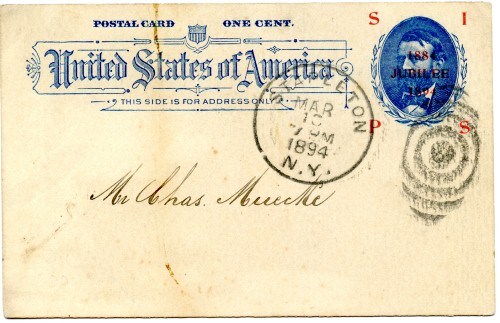 POSTAL CARD ONE CENT.
United States of America
THIS SIDE IS FOR ADDRESS ONLY
S I
1884
JUBILEE
1894
P S
STAPLETON
MAR
PM
1894
N.Y.
Mr Chas. Muecke